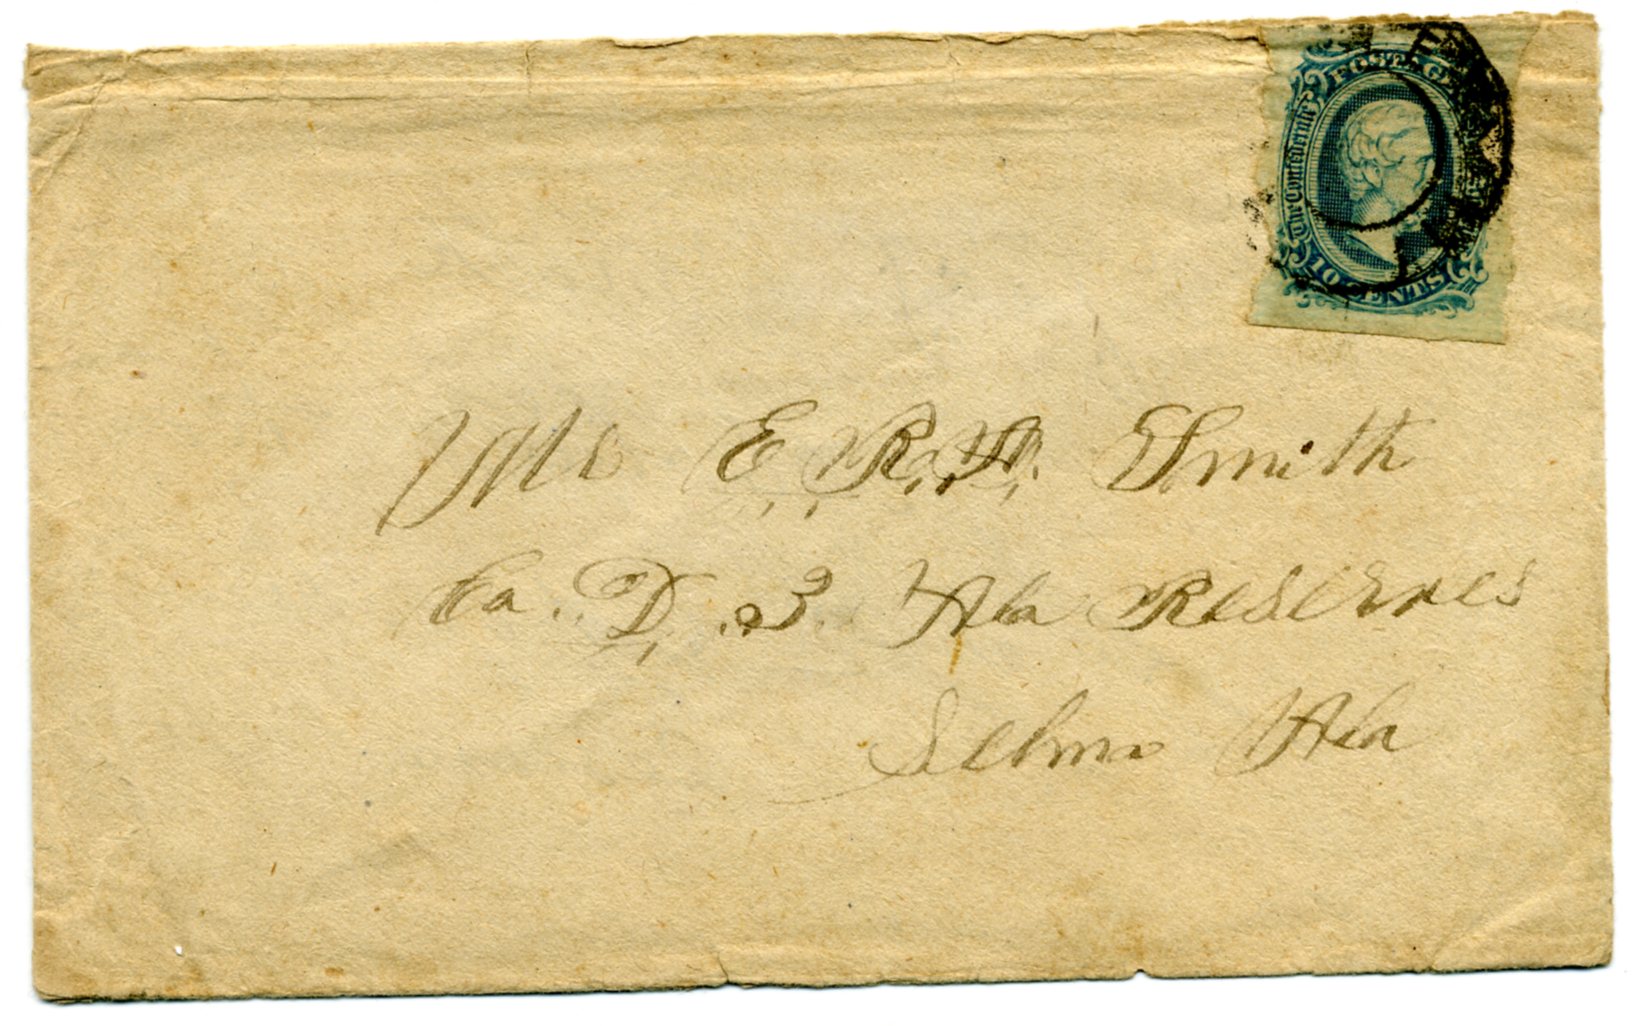 POSTAGE
The Confederate
10 CENTS
Mr E. R. H. Smith
Co. D. 3 Ala Reserves
Selma Ala